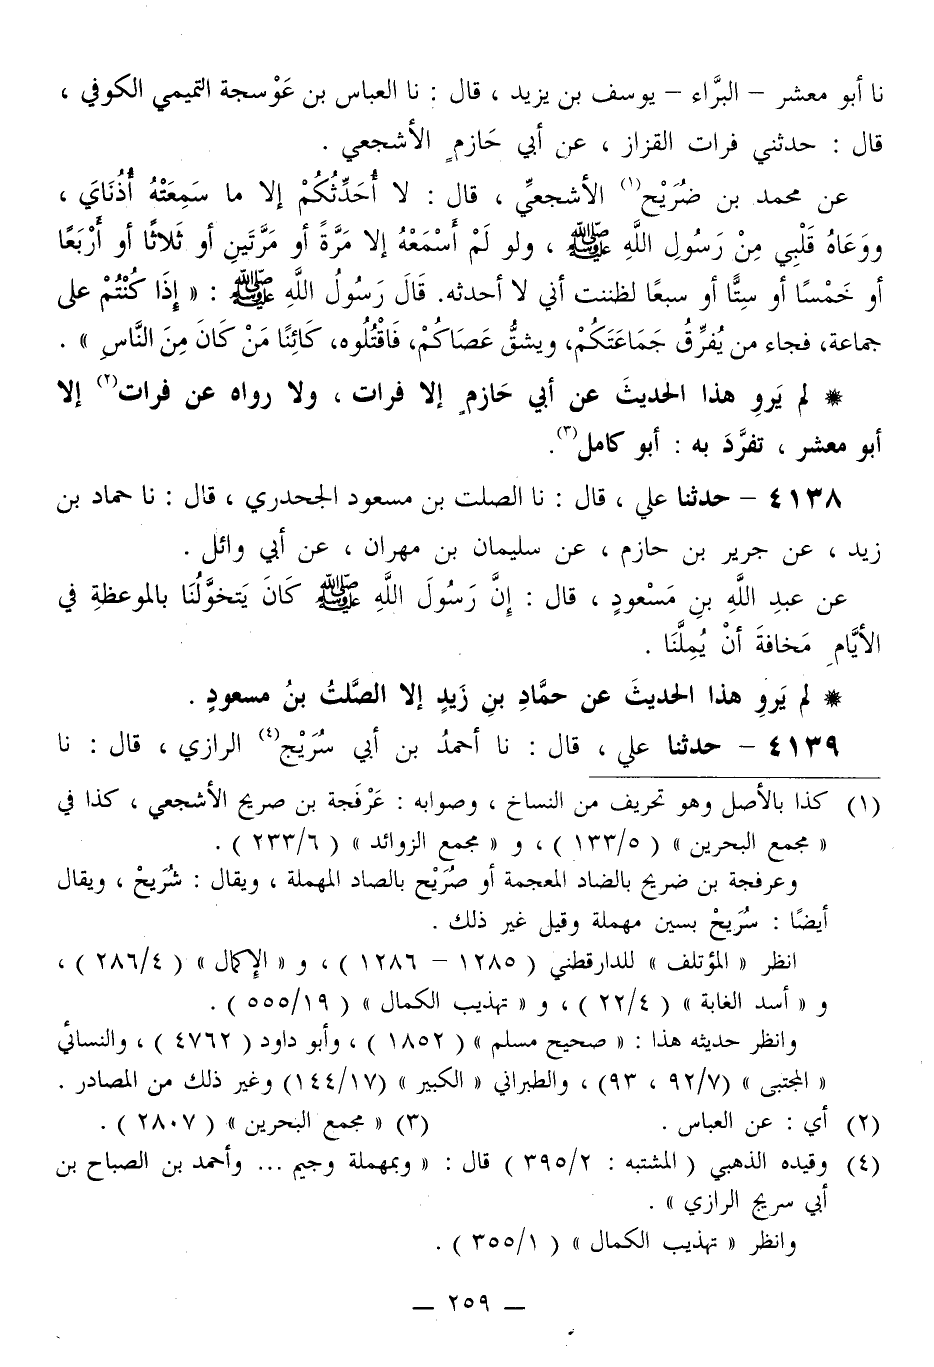 نا أبو معشر – البرَّاء – يوسف بن يزيد ، قال : نا العباس بن عَوْسجة التميمي الكوفي ،
قال : حدثني فرات القزاز ، عن أبي حَازمٍ الأشجعي .
عن محمد بن ضُرَيْح(١) الأشجعيِّ ، قال : لا أُحَدِّثُكُمْ إلا ما سَمِعَتْهُ أُذُنَايَ ،
ووَعَاهُ قَلْبِي مِنْ رَسُولِ اللَّهِ ﷺ ، ولو لَمْ أَسْمَعْهُ إلا مَرَّةً أو مَرَّتَينِ أو ثَلاثًا أو أَرْبَعًا
أو خَمْسًا أو ستًّا أو سبعًا لظننت أني لا أحدثه. قَالَ رَسُولُ اللَّهِ ﷺ : « إِذَا كُنْتُمْ على
جماعة، فجاء من يُفَرِّقُ جَمَاعَتَكُمْ، ويشقُّ عَصَاكُمْ، فَاقْتُلُوه، كَائِنًا مَنْ كَانَ مِنَ النَّاسِ » .
* لم يَروِ هذا الحديثَ عن أبي حَازمٍ إلا فرات ، ولا رواه عن فرات(٢) إلا
أبو معشر ، تفرَّدَ به : أبو كامل(٣).
٤١٣٨ – حدثنا علي ، قال : نا الصلت بن مسعود الجحدري ، قال : نا حماد بن
زيد ، عن جرير بن حازم ، عن سليمان بن مهران ، عن أبي وائل .
عن عبدِ اللَّهِ بنِ مَسْعودٍ ، قال : إِنَّ رَسُولَ اللَّهِ ﷺ كَانَ يَتخوَّلُنَا بالموعظةِ في
الأيَّامِ مَخافةَ أنْ يُمِلَّنَا .
* لم يَروِ هذا الحديثَ عن حمَّادِ بنِ زَيدٍ إلا الصَّلتُ بنُ مسعودٍ .
٤١٣٩ – حدثنا علي ، قال : نا أحمدُ بن أبي سُرَيْج(٤) الرازي ، قال : نا
(١) كذا بالأصل وهو تحريف من النساخ ، وصوابه : عَرْفجة بن صريح الأشجعي ، كذا في
« مجمع البحرين » ( ١٣٣/٥ ) ، و « مجمع الزوائد » ( ٢٣٣/٦ ) .
وعرفجة بن ضريح بالضاد المعجمة أو صُرَيْح بالصاد المهملة ، ويقال : شُرَيحْ ، ويقال
أيضًا : سُرَيحْ بسين مهملة وقيل غير ذلك .
انظر « المؤتلف » للدارقطني ( ١٢٨٥ – ١٢٨٦ ) ، و « الإكمال » ( ٢٨٦/٤ ) ،
و « أسد الغابة » ( ٢٢/٤ ) ، و « تهذيب الكمال » ( ٥٥٥/١٩ ) .
وانظر حديثه هذا : « صحيح مسلم » ( ١٨٥٢ ) ، وأبو داود ( ٤٧٦٢ ) ، والنسائي
« المجتبى » (٩٢/٧ ، ٩٣) ، والطبراني « الكبير » (١٤٤/١٧) وغير ذلك من المصادر .
(٢) أي : عن العباس . (٣) « مجمع البحرين » ( ٢٨٠٧ ) .
(٤) وقيده الذهبي ( المشتبه : ٣٩٥/٢ ) قال : « وبمهملة وجيم ... وأحمد بن الصباح بن
أبي سريج الرازي » .
وانظر « تهذيب الكمال » ( ٣٥٥/١ ) .
— ٢٥٩ —